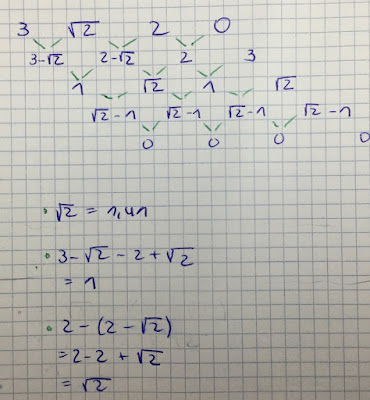 3 √2 2 0
3-√2 2-√2 2 3
1 √2 1 √2
√2-1 √2-1 √2-1 √2-1
0 0 0 0
• √2 = 1,41
• 3-√2-2+√2
= 1
• 2-(2-√2)
= 2-2+√2
= √2